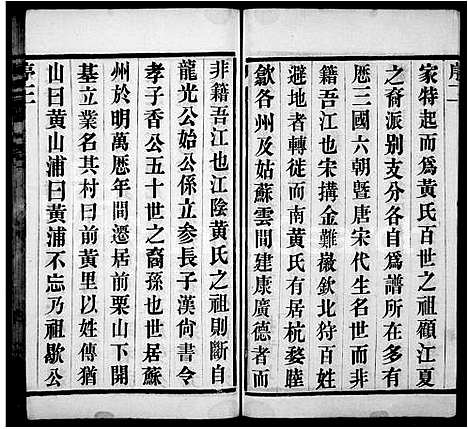 序二
家特起而為黃氏百世之祖顧江夏
之裔派別支分各自為譜所在多有
厯三國六朝暨唐宋代生名世而非
籍吾江也宋搆金難徽欽北狩百姓
避地者轉徙而南黃氏有居杭婺睦
歙各州及姑蘇雲間建康廣德者而
非籍吾江也江陰黃氏之祖則斷自
龍光公始公係立參長子漢尙書令
孝子香公五十世之裔孫也世居蘇
州於明萬厯年間遷居前栗山下開
基立業名其村曰前黃里以姓傳猶
山曰黃山浦曰黃浦不忘乃祖歇公
序三